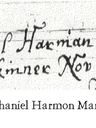 l Harman
kinner Nov
haniel Harmon Mar